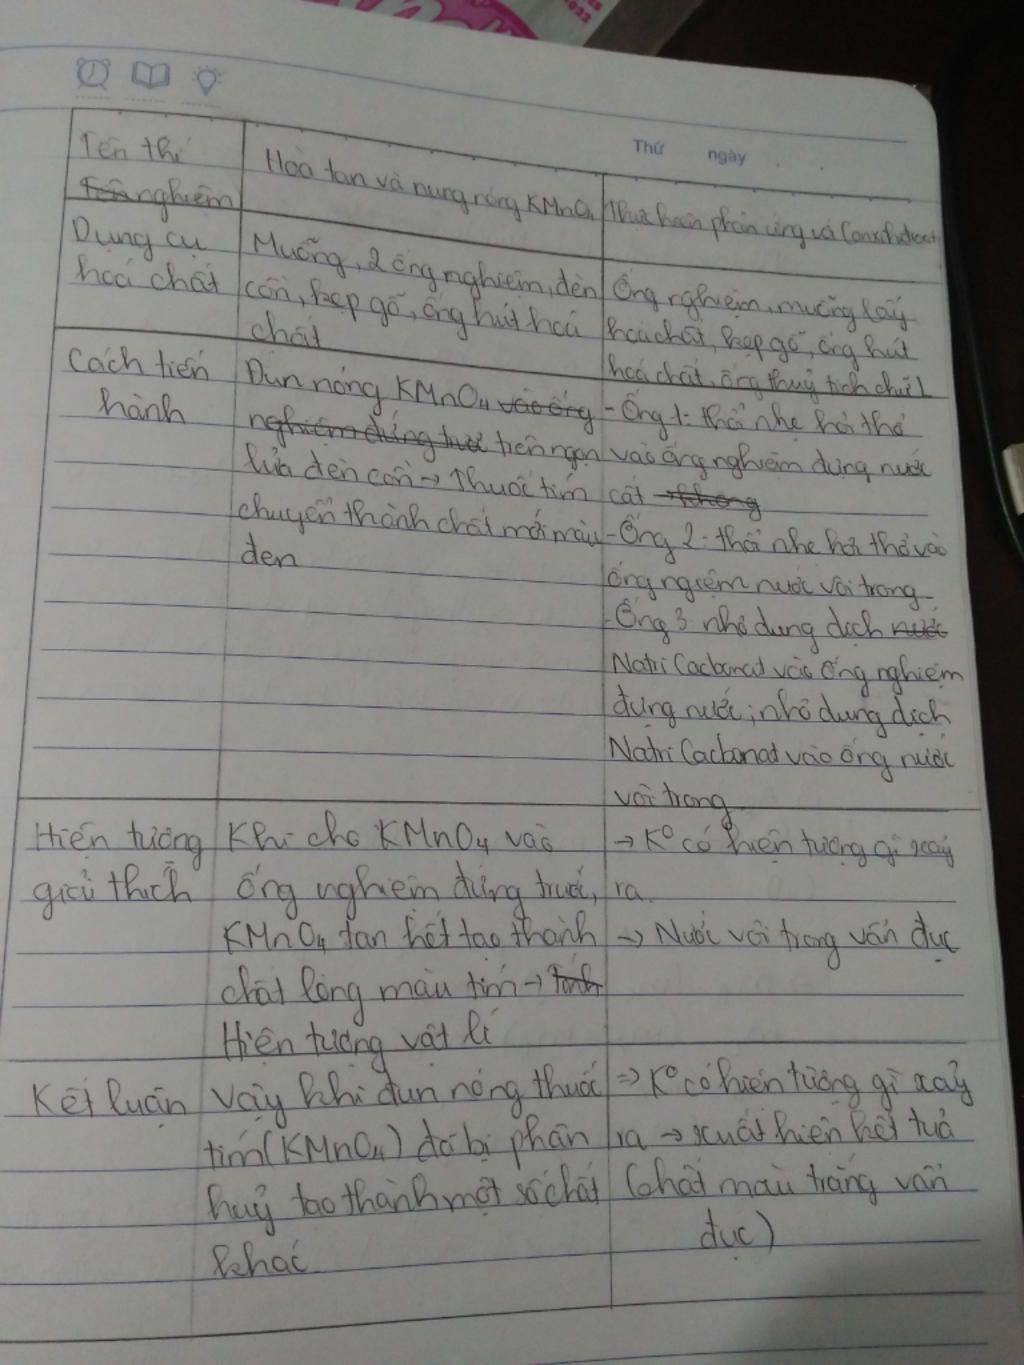 Thứ ngày
Tên thí
nghiệm
Hoà tan và nung nóng KMnO4
Thực hiện phản ứng với Canxihidroxit
Dụng cụ
hoá chất
Muỗng, 2 ống nghiệm, đèn
cồn, kẹp gỗ, ống hút hoá
chất
Ống nghiệm, muỗng lấy
hoá chất, kẹp gỗ, ống hút
hoá chất, ống thuỷ tinh chữ L
Cách tiến
hành
Đun nóng KMnO4 vào ống
nghiệm đứng trước trên ngọn
lửa đèn cồn → Thuốc tím
chuyển thành chất mới màu
đen
- Ống 1: thổi nhẹ hơi thở
vào ống nghiệm đựng nước
cất → không
- Ống 2: thổi nhẹ hơi thở vào
ống ngiệm nước vôi trong
- Ống 3 nhỏ dung dịch nước
Natri Cacbonat vào ống nghiệm
đựng nước; nhỏ dung dịch
Natri Cacbonat vào ống nước
vôi trong
Hiện tượng
giải thích
Khi cho KMnO4 vào
ống nghiệm đứng trước,
KMnO4 tan hết tạo thành
chất lỏng màu tím →
Hiện tượng vật lí
→ K° có hiện tượng gì xảy
ra.
→ Nước vôi trong vẩn đục
Kết luận
Vậy khi đun nóng thuốc
tím (KMnO4) đã bị phân
huỷ tạo thành một số chất
khác
⇒ K° có hiện tượng gì xảy
ra → xuất hiện kết tủa
(chất màu trắng vẩn
đục)